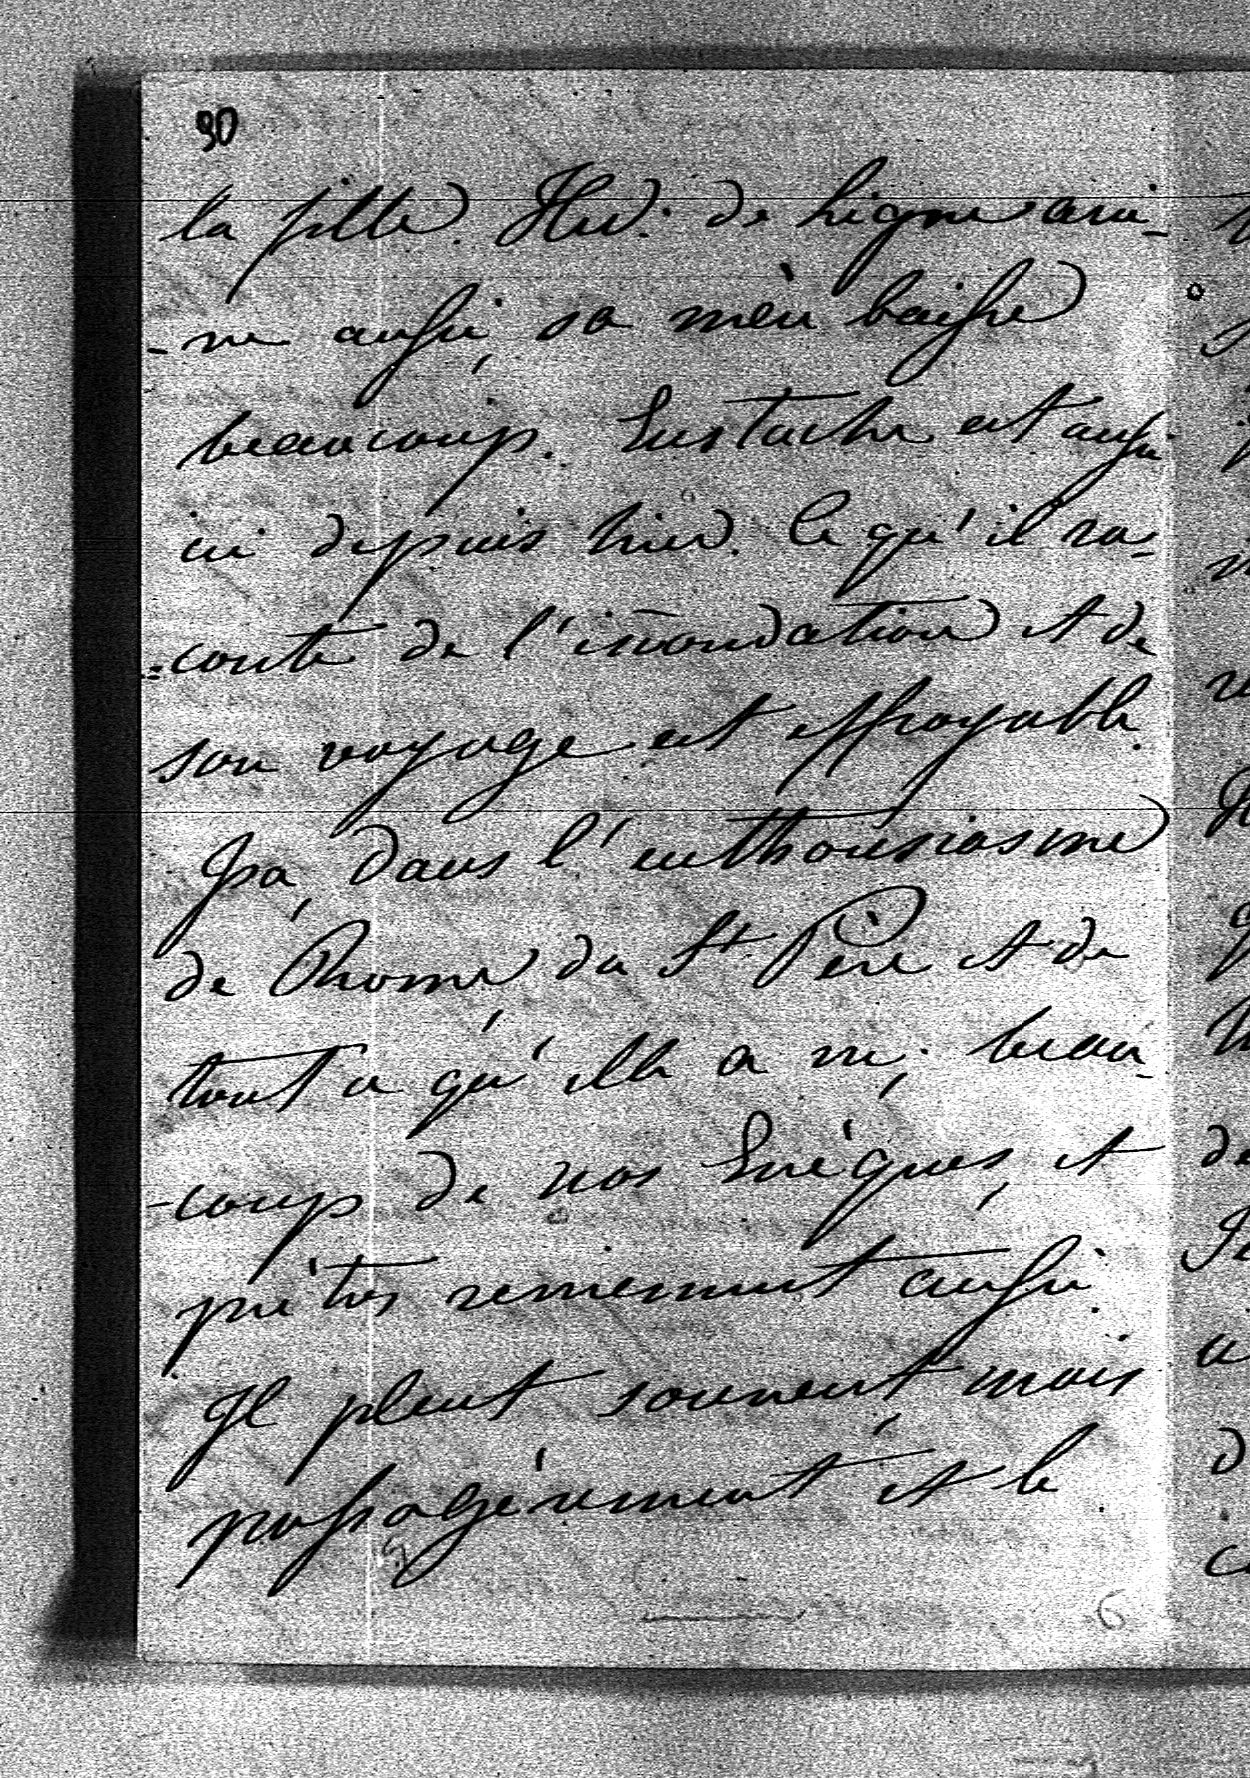 90
la fille. Hed. de Ligne arri-
-ve aussi, sa mère baisse
beaucoup. Eustache est aussi
ici depuis hier. Ce qu'il ra-
=conte de l'inondation et de
son voyage est effroyable.
Ida, dans l'enthousiasme
de Rome du St Père et de
tout ce qu'elle a vu; beau-
-coup de nos Evéques, et
prêtres reviennent aussi.
Il pleut souvent mais
passagérement et le
6